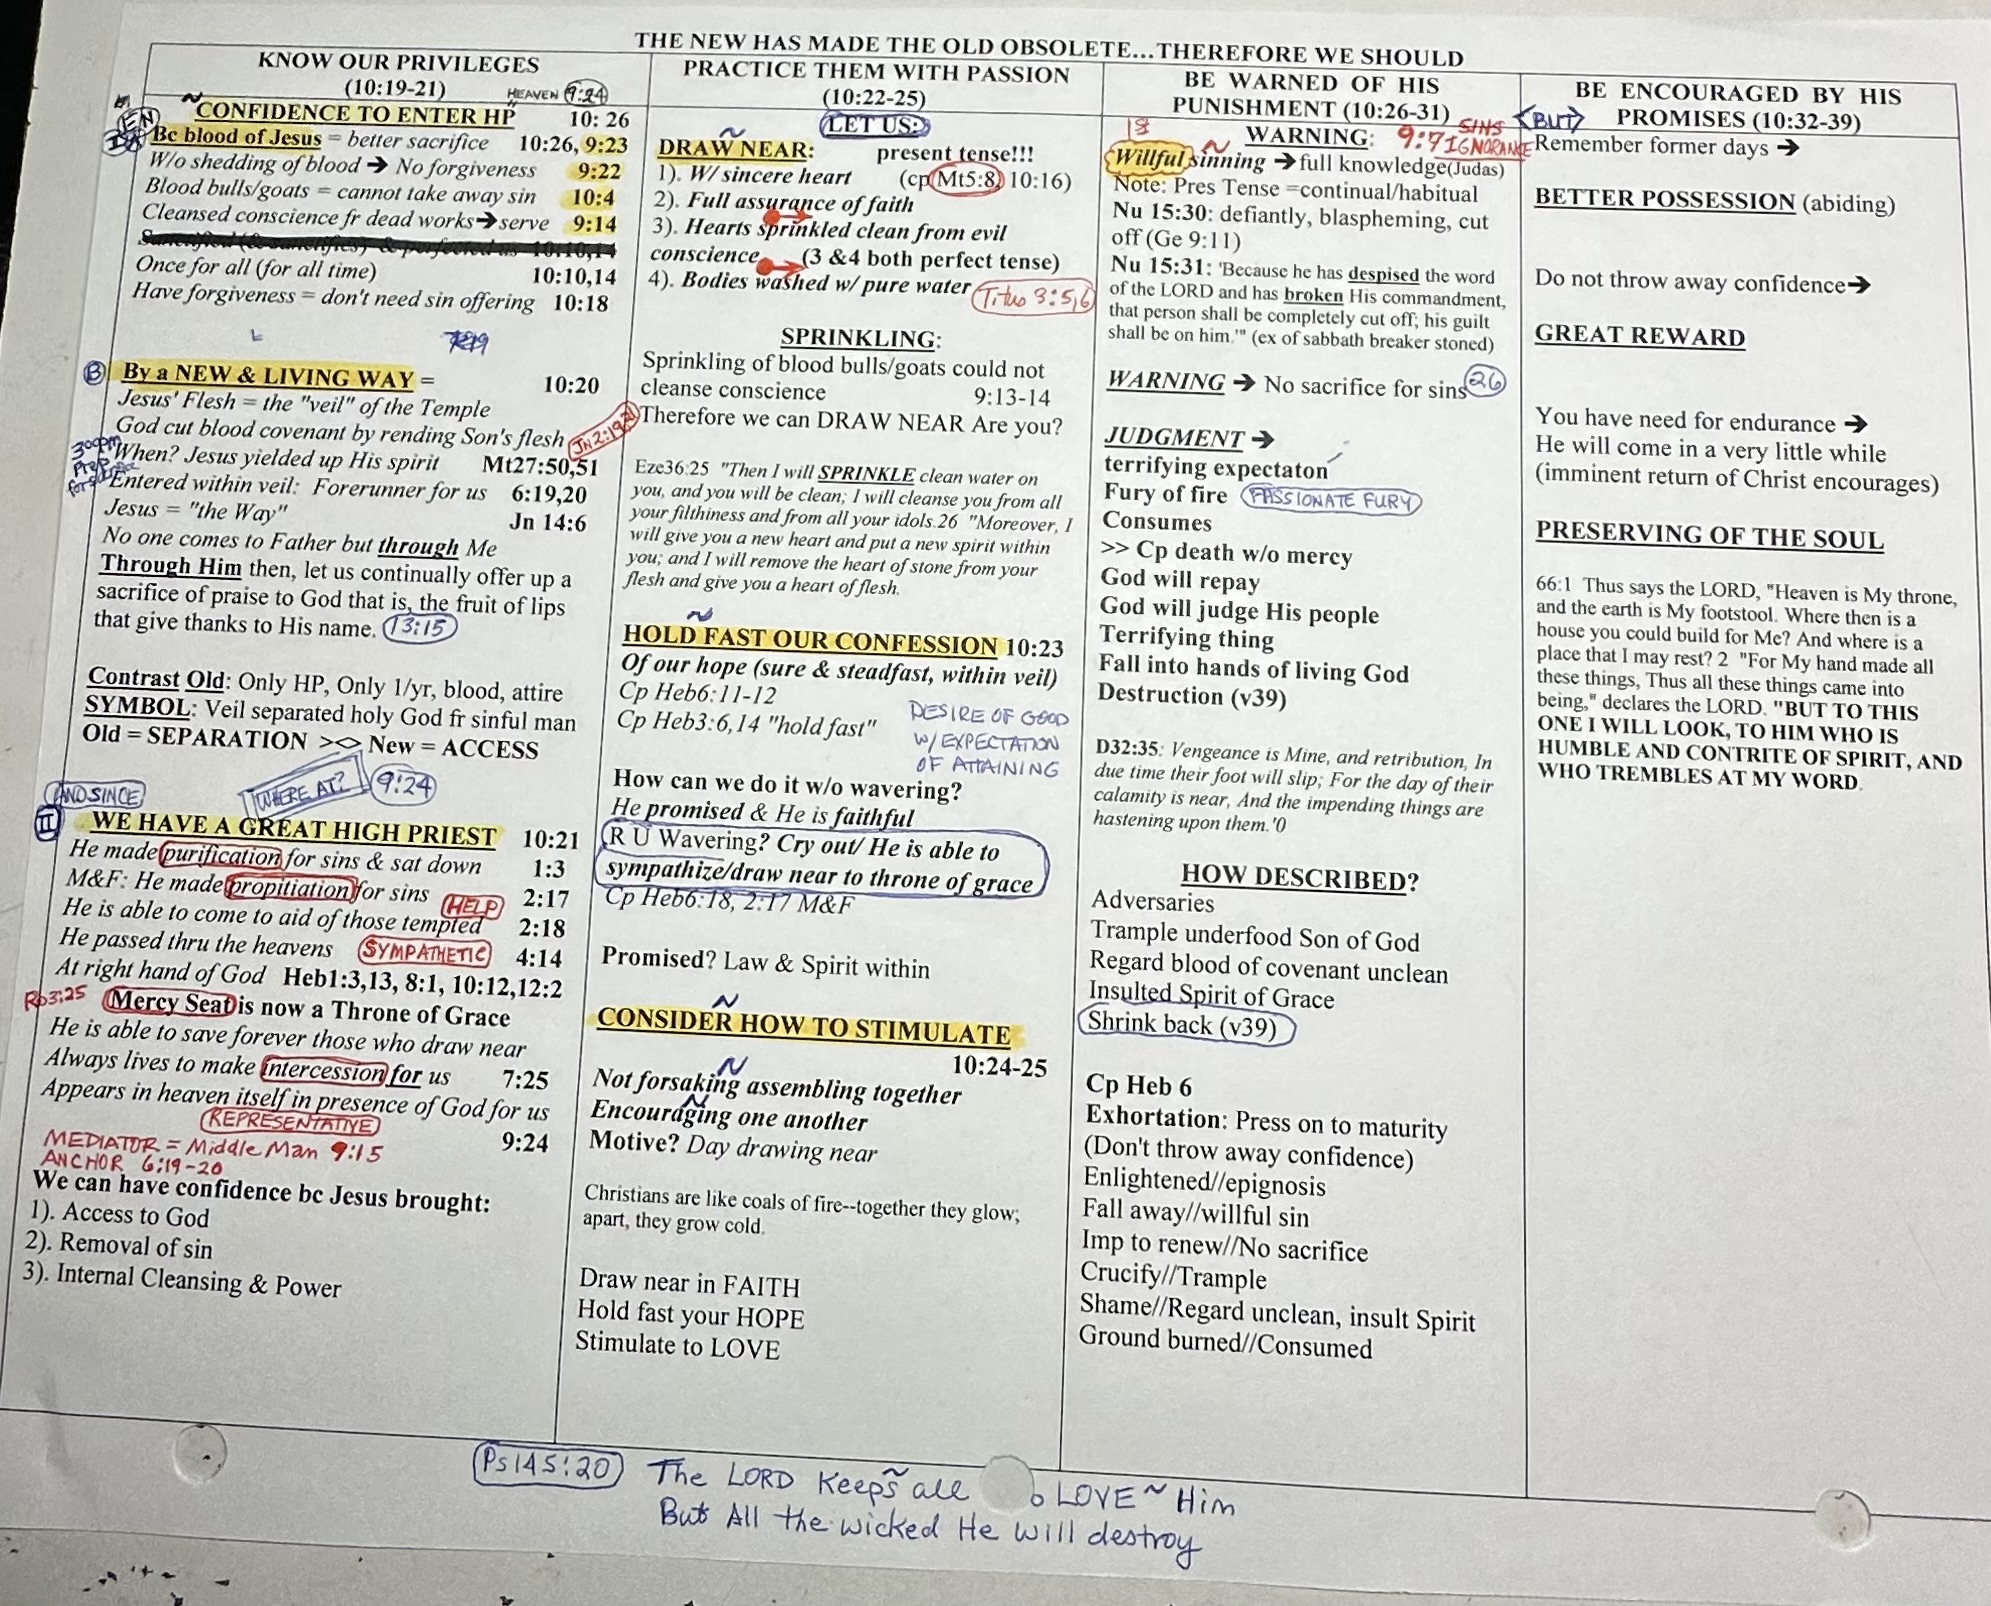 THE NEW HAS MADE THE OLD OBSOLETE...THEREFORE WE SHOULD
KNOW OUR PRIVILEGES
(10:19-21)
HEAVEN 9:24
CONFIDENCE TO ENTER HP 10: 26
EN
Bc blood of Jesus = better sacrifice 10:26, 9:23
W/o shedding of blood ➔ No forgiveness 9:22
Blood bulls/goats = cannot take away sin 10:4
Cleansed conscience fr dead works➔serve 9:14
Once for all (for all time) 10:10,14
Have forgiveness = don't need sin offering 10:18
B By a NEW & LIVING WAY = 10:20
Jesus' Flesh = the "veil" of the Temple
God cut blood covenant by rending Son's flesh Jn 2:19-21
300pm
When? Jesus yielded up His spirit Mt27:50,51
Entered within veil: Forerunner for us 6:19,20
Jesus = "the Way" Jn 14:6
No one comes to Father but through Me
Through Him then, let us continually offer up a
sacrifice of praise to God that is, the fruit of lips
that give thanks to His name. 13:15
Contrast Old: Only HP, Only 1/yr, blood, attire
SYMBOL: Veil separated holy God fr sinful man
Old = SEPARATION ><> New = ACCESS
AND SINCE WHERE AT? 9:24
II WE HAVE A GREAT HIGH PRIEST 10:21
He made purification for sins & sat down 1:3
M&F: He made propitiation for sins 2:17
HELP
He is able to come to aid of those tempted 2:18
He passed thru the heavens SYMPATHETIC 4:14
At right hand of God Heb1:3,13, 8:1, 10:12,12:2
Ro3:25 Mercy Seat is now a Throne of Grace
He is able to save forever those who draw near
Always lives to make intercession for us 7:25
Appears in heaven itself in presence of God for us
REPRESENTATIVE 9:24
MEDIATOR = Middle Man 9:15
ANCHOR 6:19-20
We can have confidence bc Jesus brought:
1). Access to God
2). Removal of sin
3). Internal Cleansing & Power
PRACTICE THEM WITH PASSION
(10:22-25)
LET US:
DRAW NEAR: present tense!!!
1). W/ sincere heart (cp Mt5:8, 10:16)
2). Full assurance of faith
3). Hearts sprinkled clean from evil
conscience (3 &4 both perfect tense)
4). Bodies washed w/ pure water Titus 3:5,6
SPRINKLING:
Sprinkling of blood bulls/goats could not
cleanse conscience 9:13-14
Therefore we can DRAW NEAR Are you?
Eze36:25 "Then I will SPRINKLE clean water on
you, and you will be clean; I will cleanse you from all
your filthiness and from all your idols.26 "Moreover, I
will give you a new heart and put a new spirit within
you; and I will remove the heart of stone from your
flesh and give you a heart of flesh.
HOLD FAST OUR CONFESSION 10:23
Of our hope (sure & steadfast, within veil)
Cp Heb6:11-12
Cp Heb3:6,14 "hold fast"
DESIRE OF GOOD
W/ EXPECTATION
OF ATTAINING
How can we do it w/o wavering?
He promised & He is faithful
R U Wavering? Cry out/ He is able to
sympathize/draw near to throne of grace
Cp Heb6:18, 2:17 M&F
Promised? Law & Spirit within
CONSIDER HOW TO STIMULATE
10:24-25
Not forsaking assembling together
Encouraging one another
Motive? Day drawing near
Christians are like coals of fire--together they glow;
apart, they grow cold.
Draw near in FAITH
Hold fast your HOPE
Stimulate to LOVE
BE WARNED OF HIS
PUNISHMENT (10:26-31)
WARNING: 9:7 SINS IGNORANCE
Willful sinning ➔ full knowledge(Judas)
Note: Pres Tense =continual/habitual
Nu 15:30: defiantly, blaspheming, cut
off (Ge 9:11)
Nu 15:31: 'Because he has despised the word
of the LORD and has broken His commandment,
that person shall be completely cut off; his guilt
shall be on him.'" (ex of sabbath breaker stoned)
WARNING ➔ No sacrifice for sins 26
JUDGMENT ➔
terrifying expectaton
Fury of fire PASSIONATE FURY
Consumes
>> Cp death w/o mercy
God will repay
God will judge His people
Terrifying thing
Fall into hands of living God
Destruction (v39)
D32:35: Vengeance is Mine, and retribution, In
due time their foot will slip; For the day of their
calamity is near, And the impending things are
hastening upon them.'0
HOW DESCRIBED?
Adversaries
Trample underfood Son of God
Regard blood of covenant unclean
Insulted Spirit of Grace
Shrink back (v39)
Cp Heb 6
Exhortation: Press on to maturity
(Don't throw away confidence)
Enlightened//epignosis
Fall away//willful sin
Imp to renew//No sacrifice
Crucify//Trample
Shame//Regard unclean, insult Spirit
Ground burned//Consumed
BE ENCOURAGED BY HIS
<BUT> PROMISES (10:32-39)
Remember former days ➔
BETTER POSSESSION (abiding)
Do not throw away confidence➔
GREAT REWARD
You have need for endurance ➔
He will come in a very little while
(imminent return of Christ encourages)
PRESERVING OF THE SOUL
66:1 Thus says the LORD, "Heaven is My throne,
and the earth is My footstool. Where then is a
house you could build for Me? And where is a
place that I may rest? 2 "For My hand made all
these things, Thus all these things came into
being," declares the LORD. "BUT TO THIS
ONE I WILL LOOK, TO HIM WHO IS
HUMBLE AND CONTRITE OF SPIRIT, AND
WHO TREMBLES AT MY WORD.
Ps145:20 The LORD Keeps all LOVE Him
But All the wicked He will destroy